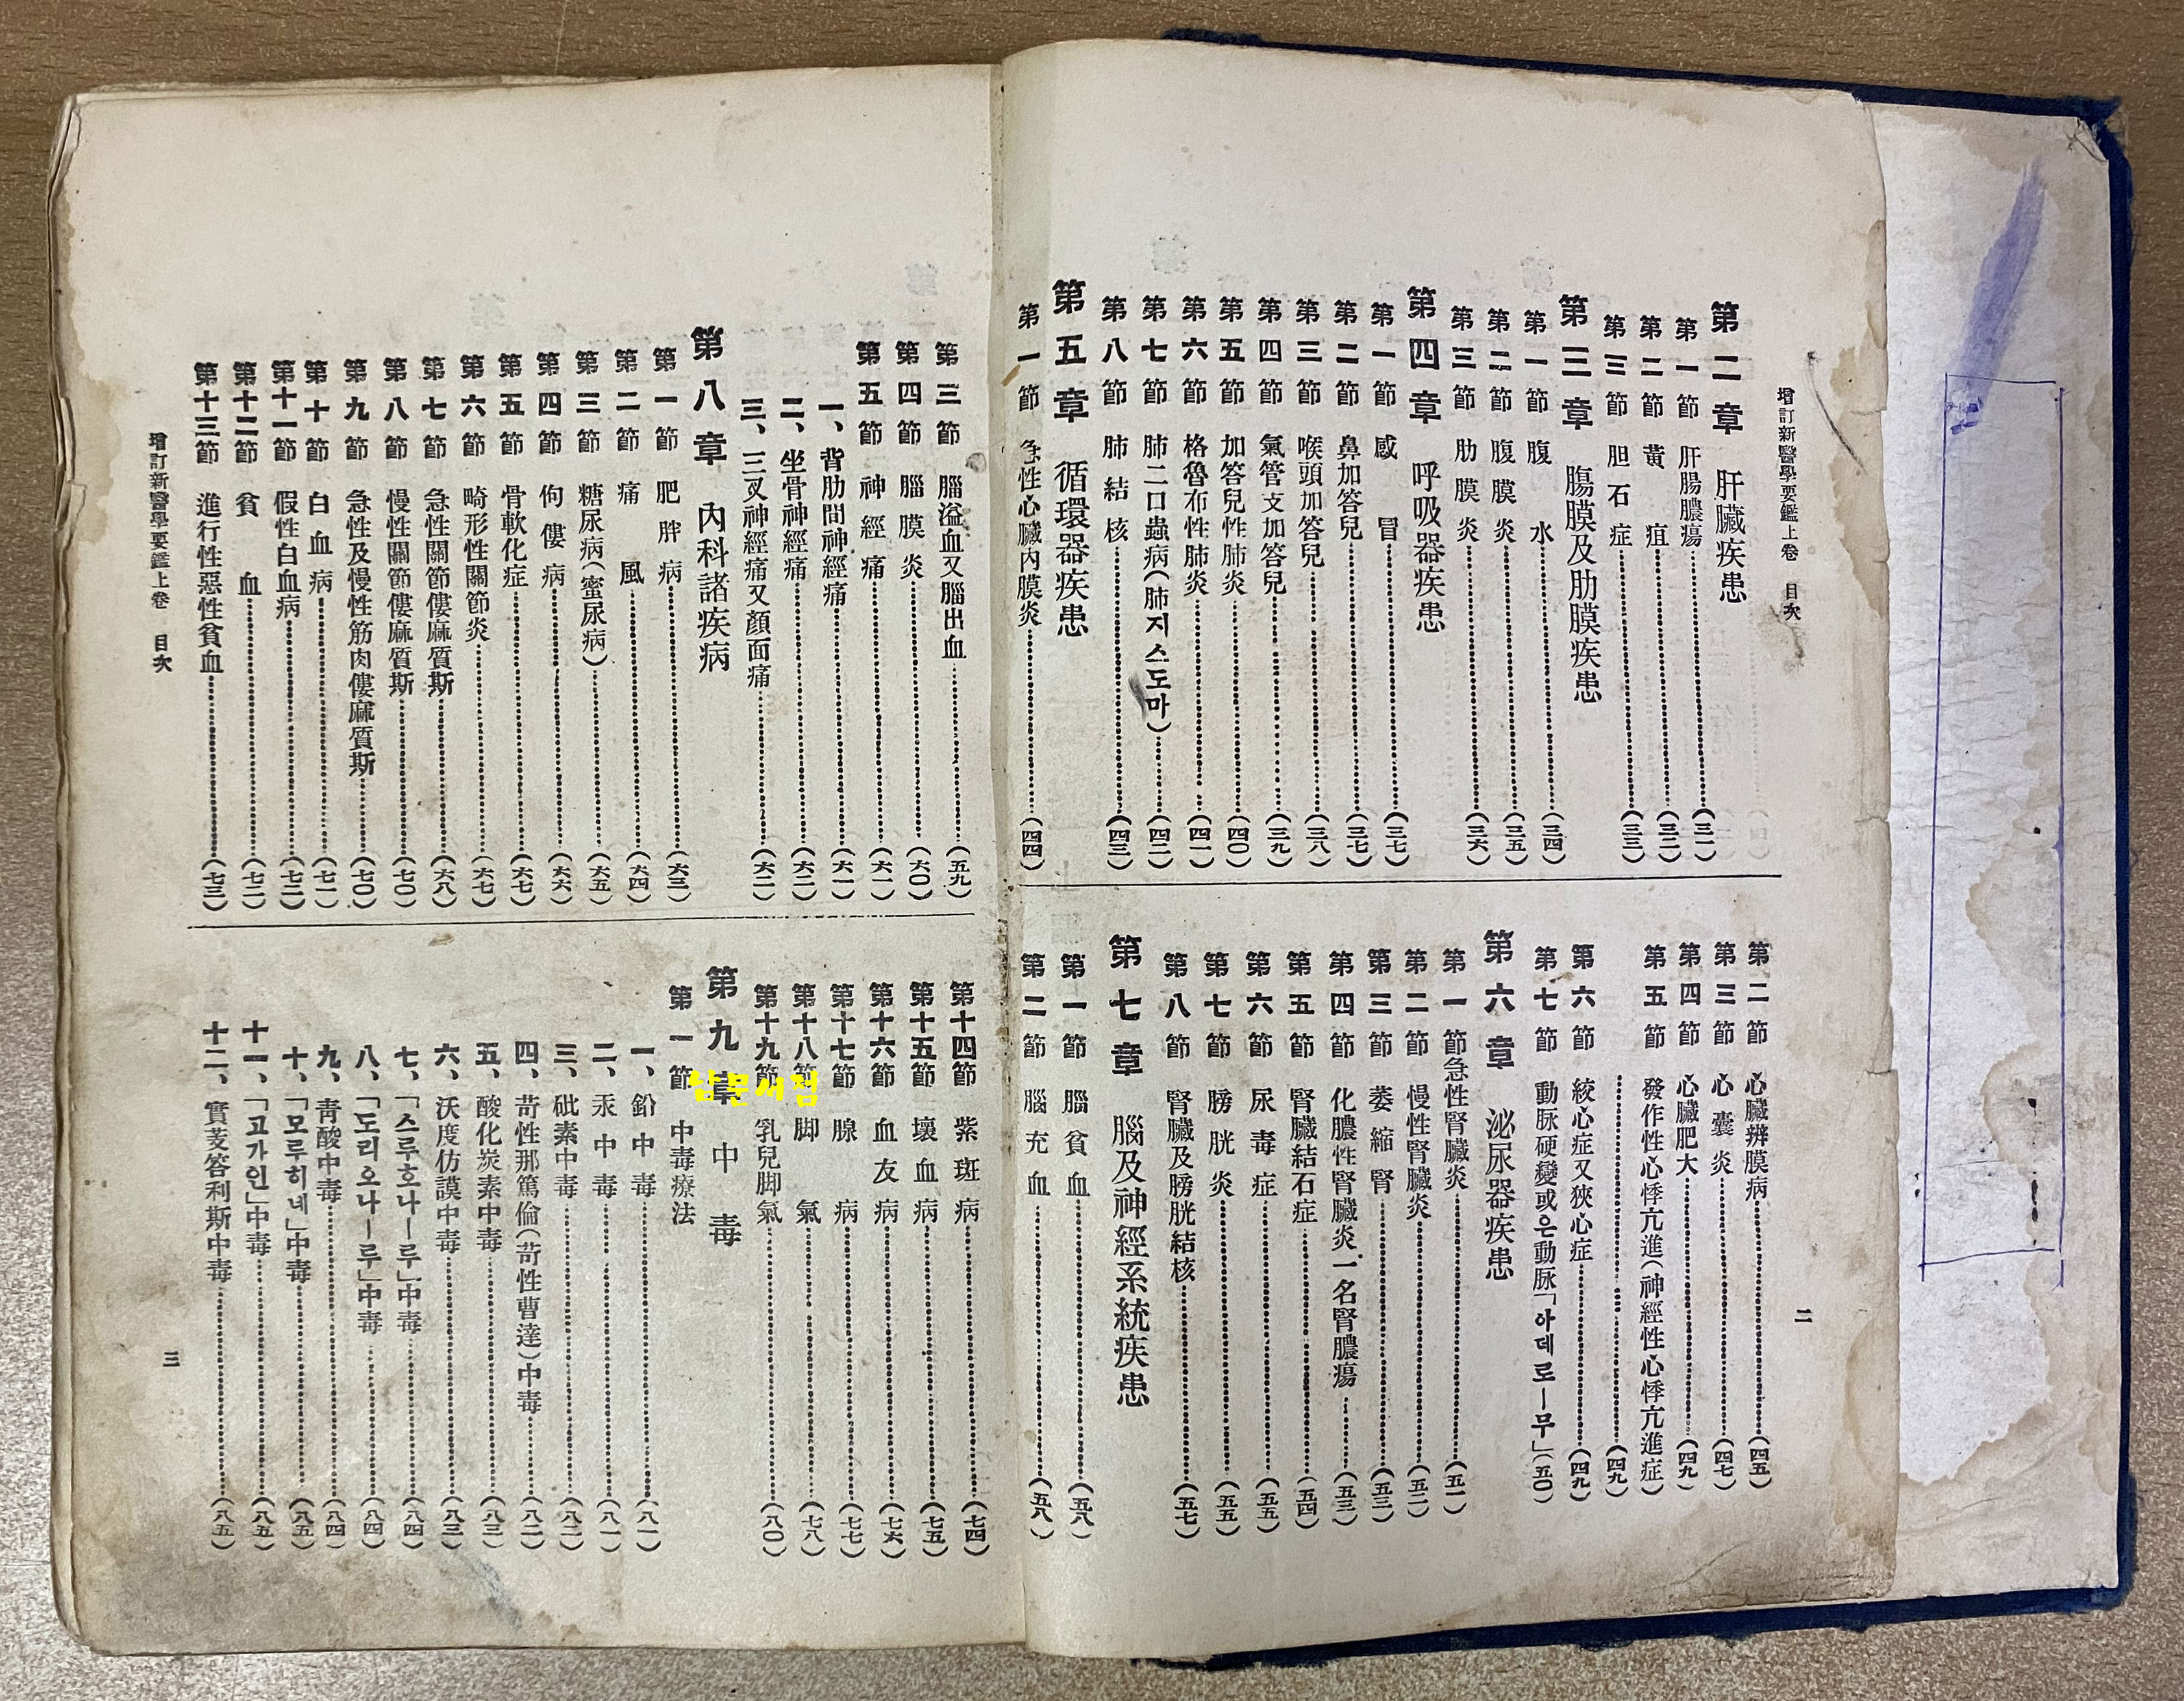 增訂新醫學要鑑上卷 目次
二
第二章 肝臟疾患
第一節 肝腸膿瘍 (三一)
第二節 黃疸 (三二)
第三節 胆石症 (三三)
第三章 腸膜及肋膜疾患
第一節 腹水 (三四)
第二節 腹膜炎 (三五)
第三節 肋膜炎 (三六)
第四章 呼吸器疾患
第一節 感冒 (三七)
第二節 鼻加答兒 (三七)
第三節 喉頭加答兒 (三八)
第四節 氣管支加答兒 (三九)
第五節 加答兒性肺炎 (四〇)
第六節 格魯布性肺炎 (四一)
第七節 肺二口蟲病(肺지스도마) (四二)
第八節 肺結核 (四三)
第五章 循環器疾患
第一節 急性心臟內膜炎 (四四)
第二節 心臟辨膜病 (四五)
第三節 心囊炎 (四七)
第四節 心臟肥大 (四九)
第五節 發作性心悸亢進(神經性心悸亢進症)
(四九)
第六節 絞心症又狹心症 (四九)
第七節 動脉硬變或은動脉「아데로ー무」 (五〇)
第六章 泌尿器疾患
第一節 急性腎臟炎 (五一)
第二節 慢性腎臟炎 (五二)
第三節 萎縮腎 (五三)
第四節 化膿性腎臟炎一名腎膿瘍 (五三)
第五節 腎臟結石症 (五四)
第六節 尿毒症 (五五)
第七節 膀胱炎 (五五)
第八節 腎臟及膀胱結核 (五七)
第七章 腦及神經系統疾患
第一節 腦貧血 (五八)
第二節 腦充血 (五八)
第三節 腦溢血又腦出血 (五九)
第四節 腦膜炎 (六〇)
第五節 神經痛 (六一)
一、背肋間神經痛 (六一)
二、坐骨神經痛 (六二)
三、三叉神經痛又顏面痛 (六二)
第八章 內科諸疾病
第一節 肥胖病 (六三)
第二節 痛風 (六四)
第三節 糖尿病(蜜尿病) (六五)
第四節 佝僂病 (六六)
第五節 骨軟化症 (六七)
第六節 畸形性關節炎 (六七)
第七節 急性關節僂麻質斯 (六八)
第八節 慢性關節僂麻質斯 (七〇)
第九節 急性及慢性筋肉僂麻質斯 (七〇)
第十節 白血病 (七一)
第十一節 假性白血病 (七二)
第十二節 貧血 (七二)
第十三節 進行性惡性貧血 (七三)
第十四節 紫斑病 (七四)
第十五節 壞血病 (七五)
第十六節 血友病 (七六)
第十七節 腺病 (七七)
第十八節 脚氣 (七八)
第十九節 乳兒脚氣 (八〇)
第九章 中毒
第一節 中毒療法
一、鉛中毒 (八一)
二、汞中毒 (八一)
三、砒素中毒 (八二)
四、苛性那篤倫(苛性曹達)中毒 (八二)
五、酸化炭素中毒 (八三)
六、沃度仿謨中毒 (八三)
七、「스루호나ー루」中毒 (八四)
八、「도리오나ー루」中毒 (八四)
九、靑酸中毒 (八四)
十、「모루히네」中毒 (八五)
十一、「고가인」中毒 (八五)
十二、實芰答利斯中毒 (八五)
增訂新醫學要鑑上卷 目次
三
남문서점